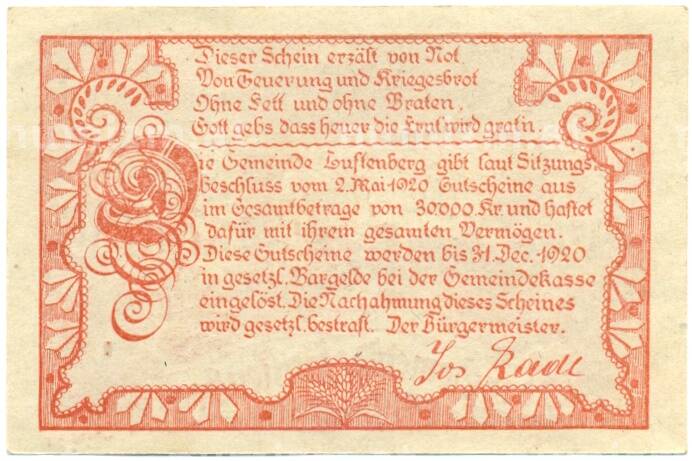 Dieser Schein erzält von Not
Von Teuerung und Kriegesbrot
Ohne Fett und ohne Braten,
Gott gebs dass heuer die Ernt wird gratn.
Die Gemeinde Luftenberg gibt laut Sitzungs
beschluss vom 2. Mai 1920 Gutscheine aus
im Gesamtbetrage von 30000 Kr. und haftet
dafür mit ihrem gesamten Vermögen.
Diese Gutscheine werden bis 31. Dec. 1920
in gesetzl. Bargelde bei der Gemeindekasse
eingelöst. Die Nachahmung dieses Scheines
wird gesetzl. bestraft. Der Bürgermeister.
Jos